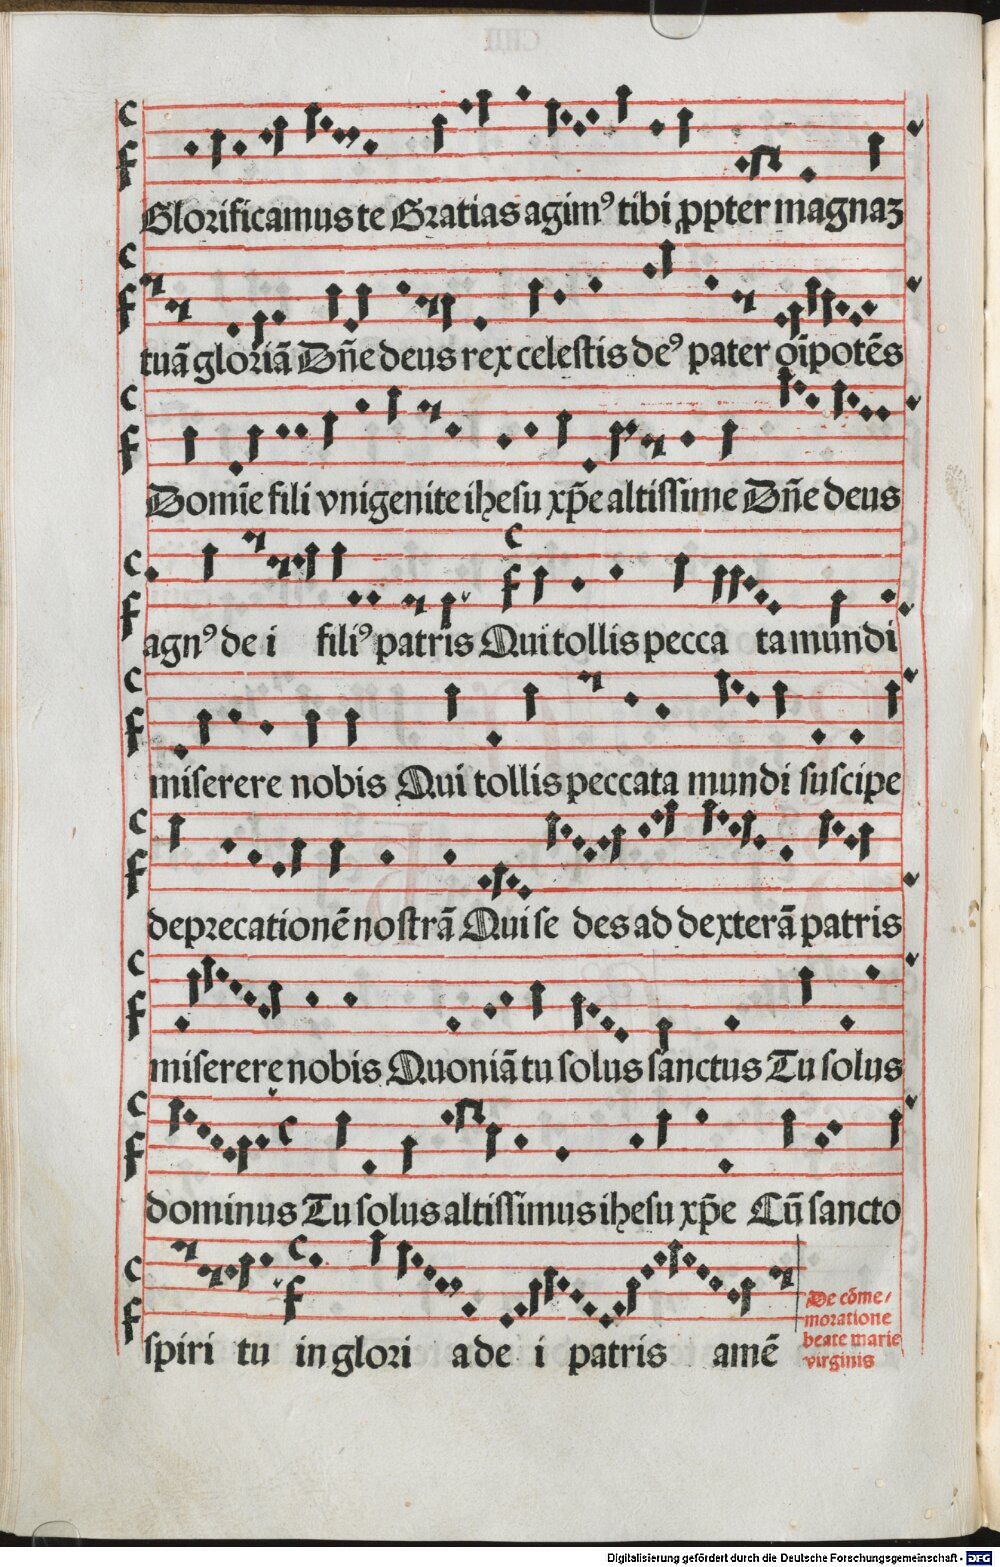 Glorificamus te Gratias agimꝰ tibi ꝓpter magnaꝫ
tuā gloriā Dn̄e deus rex celestis deꝰ pater oīpotēs
Domīe fili vnigenite ihesu xp̄e altissime Dn̄e deus
agnꝰ de i filiꝰ patris Qui tollis pecca ta mundi
miserere nobis Qui tollis peccata mundi suscipe
deprecationē nostrā Qui se des ad dexterā patris
miserere nobis Quoniā tu solus sanctus Tu solus
dominus Tu solus altissimus ihesu xp̄e Cū sancto
spiri tu in glori a de i patris amē
De cōme/
moratione
beate marie
virginis
Digitalisierung gefördert durch die Deutsche Forschungsgemeinschaft - DFG